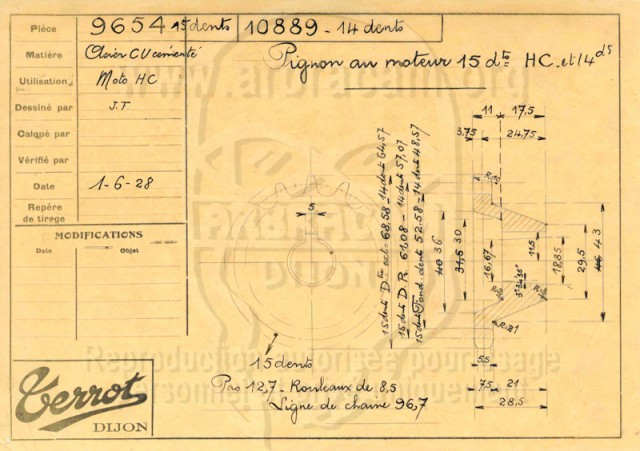 Pièce 9654 15 dents 10889 - 14 dents
Matière Acier CV cémenté
Utilisation Moto HC
Dessiné par J.T
Calqué par
Vérifié par
Date 1-6-28
Repère de tirage
MODIFICATIONS
Date Objet
Pignon au moteur 15 dts HC. et 14 ds
11 17,5
3,75 24,75
5
15 dents Dtre ext. 68,58 - 14 dents 64,57
15 dents D.R 61,08 - 14 dents 57,07
15 dents Fond. dents 52.58 - 14 dents 48,57
40 36
31,5 30
16,67
11,5
18,85
29,5
46 43
5,5
7,5 21
28,5
15 dents
Pas 12,7 - Rouleaux de 8,5
Ligne de chaine 96,7
Terrot
DIJON
www.arbracan.org
DIJON
Reproduction autorisée pour usage
personnel uniquement